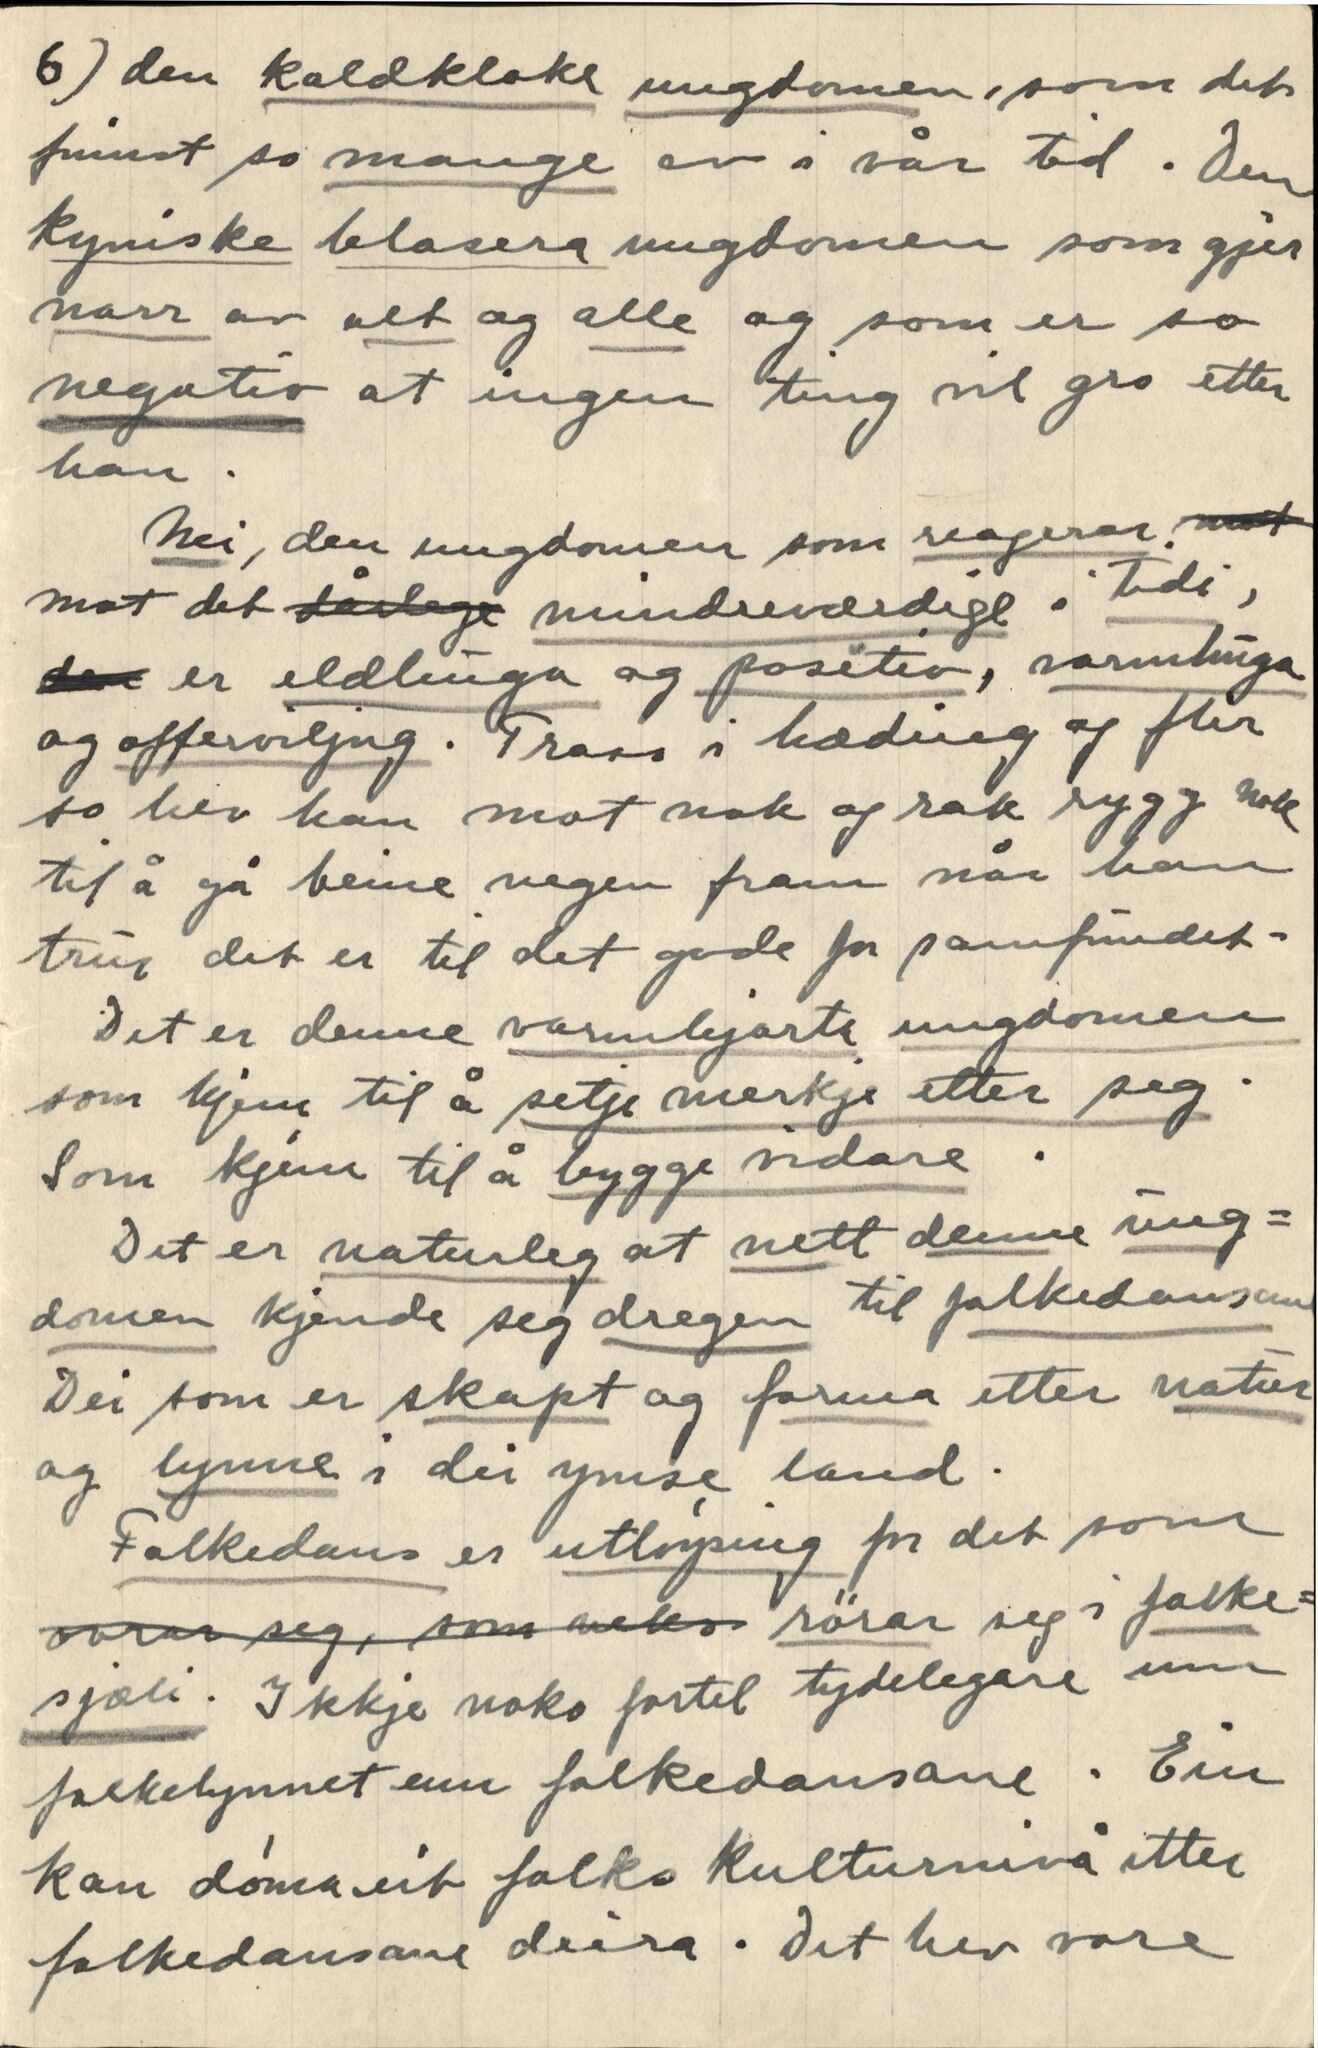 6) den kaldkloke ungdomen, som det
finnst so mange av i vår tid. Den
kyniske blasera ungdomen som gjer
narr av alt og alle og som er so
negativ at ingen ting vil gro etter
han.
Nei, den ungdomen som reagerar mot
mot det dårlege mindreværdige i tidi,
den er eldhuga og positiv, varmhuga
og offerviljug. Trass i hæding og flir
so hev han mot nok og rak rygg nok
til å gå beine vegen fram når han
trur det er til det gode for samfundet.
Det er denne varmhjarta ungdomen
som kjem til å setje merkje etter seg.
Som kjem til å bygge vidare.
Det er naturleg at nett denne ung=
domen kjende seg dregen til folkedansane
Dei som er skapt og forma etter natur
og lynne i dei ymse land.
Folkedans er utløysing for det som
rörar seg i folke=
sjæli. Ikkje noko fortel tydelegare um
folkelynnet enn folkedansane. Ein
kan döma eit folks kulturnivå etter
folkedansane deira. Det hev vore